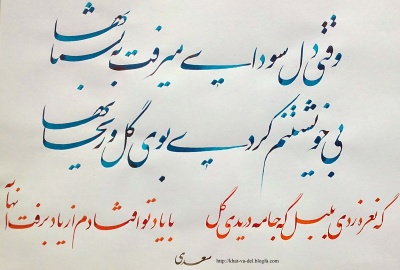 وقتی دل سودایے میرفت به بستانها
بی خویشتنم کردے بوی گل و ریحانها
گه نعره زدی بلبل گه جامه دریدی گل با یاد تو افتادم از یاد برفت آنها
سعدی http://khat-va-del.blogfa.com